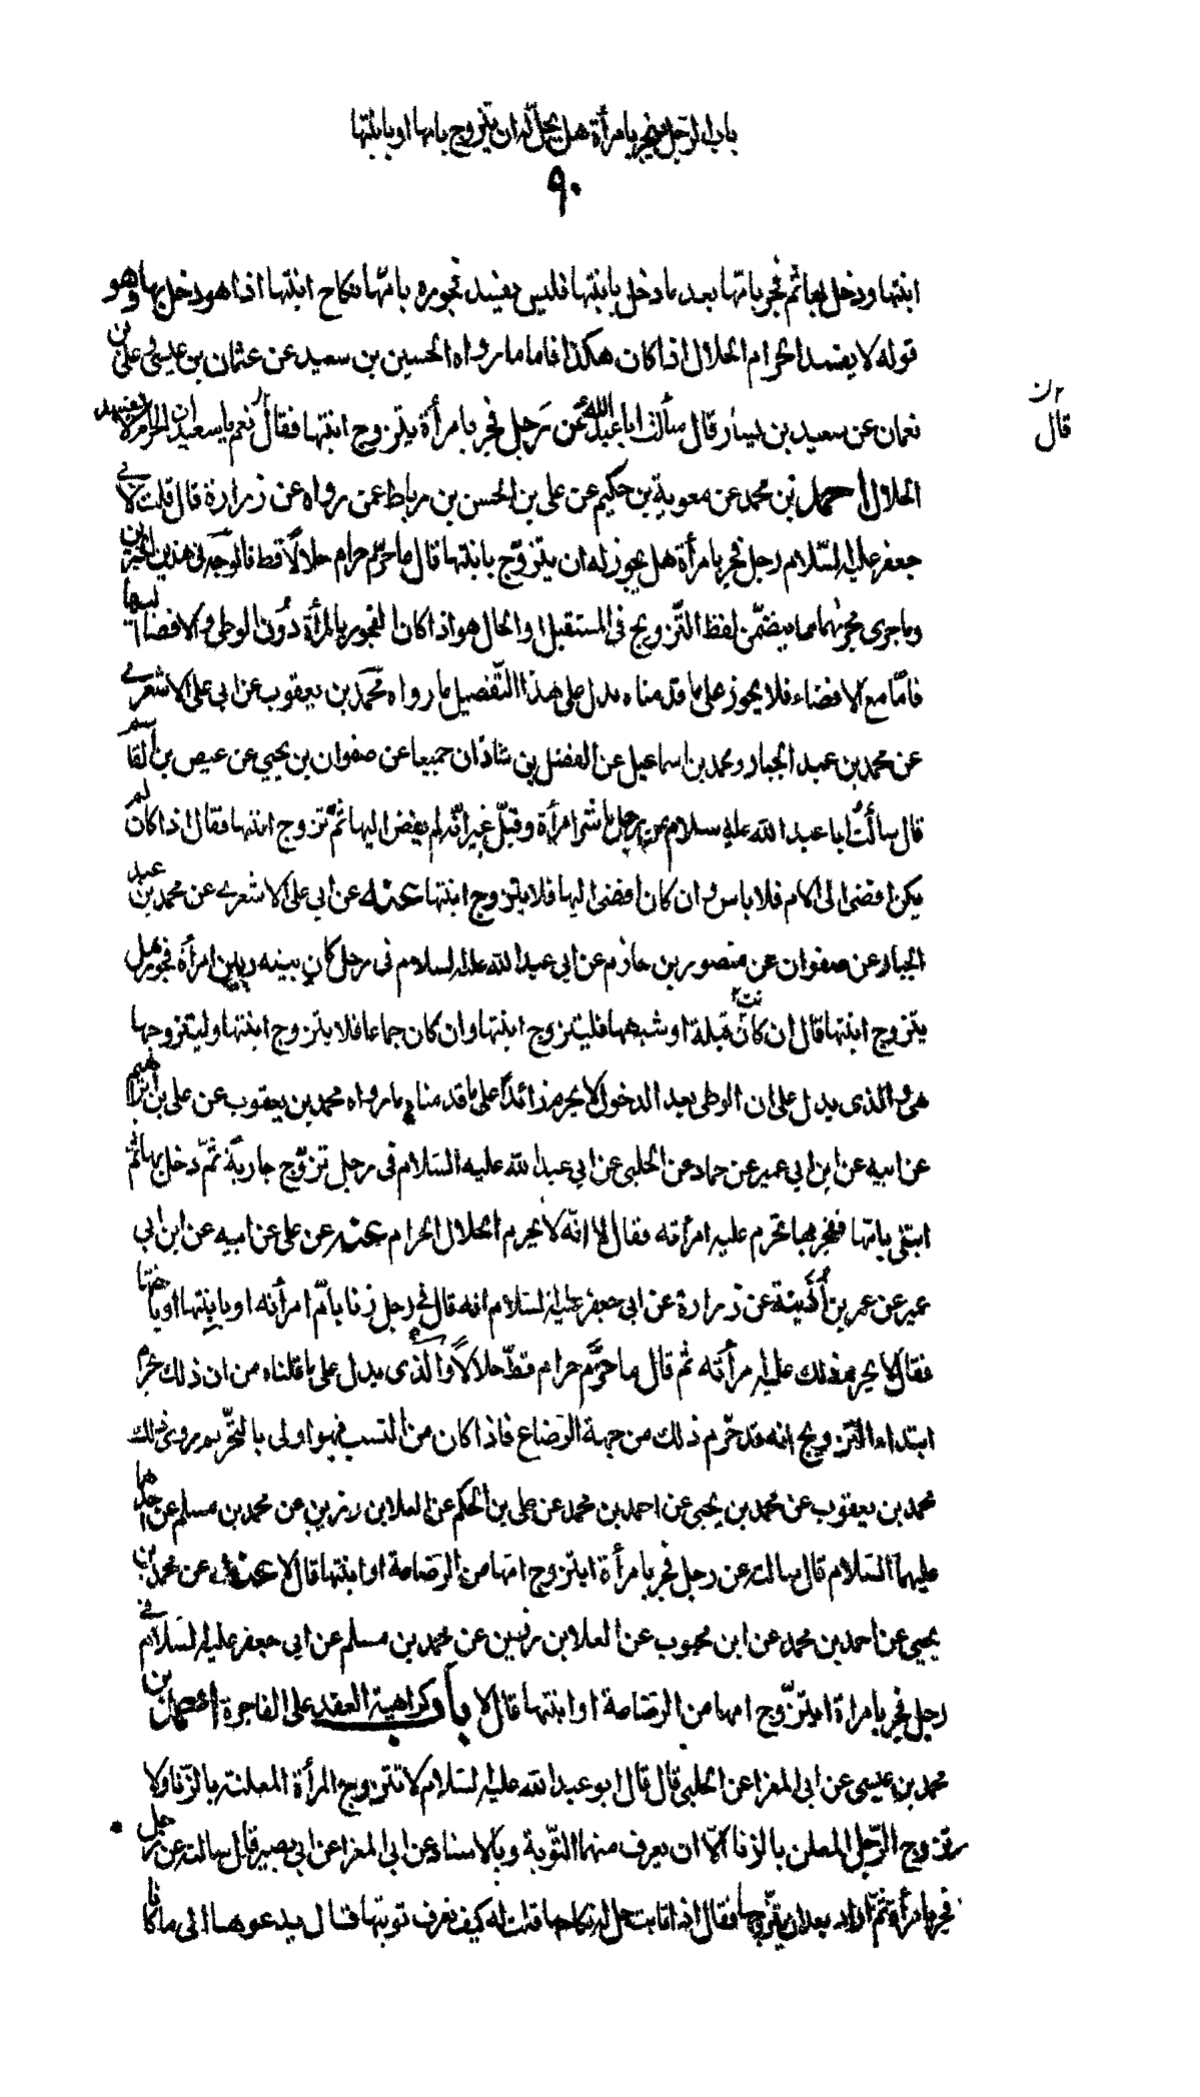 باب الرّجل يفجر بامرأة هل يحلّ له ان يتزوج بامها او بابنتها
٩٠
ابنتها ودخل بها ثم فجر بامّها بعد ما دخل بابنتها فليس يفسد فجوره بامّها نكاح ابنتها اذا هو دخل بها وهو
قوله لا يفسد الحرام الحلال اذا كان هكذا فاما ما رواه الحسين بن سعيد عن عثمان بن عيسى عن علي بن
نعمان عن سعيد بن يسار قال سألت ابا عبد الله عن رجل فجر بامرأة يتزوج ابنتها فقال نعم يا سعيد ان الحرام لا يفسد
٢ ن
قال
الحلال احمد بن محمد عن معوية بن حكيم عن علي بن الحسن بن رباط عمن رواه عن زرارة قال قلت لابي
جعفر عليه السّلام رجل فجر بامرأة هل يجوز له ان يتزوّج بابنتها قال ما حرّم حرام حلالاً قط فالوجه في هذين الخبرين
وما جرى مجريهما مما يتضمّن لفظ التّزويج في المستقبل او الحال هو اذا كان الفجور بالمرأة دون الوطي والافضاء اليها
فامّا مع الافضاء فلا يجوز على ما قدمناه يدل على هذا التّفصيل ما رواه محمّد بن يعقوب عن ابي علي الاشعري
عن محمد بن عبد الجبار ومحمد بن اسماعيل عن الفضل بن شاذان جميعا عن صفوان بن يحيى عن عيص بن القاسم
قال سألتُ ابا عبد الله عليه سلام عن رجل باشر امرأة وقبّل غير انّه لم يفض اليها ثمّ تزوج ابنتها فقال اذا كان لم
يكن افضى الى الام فلا باس وان كان افضى اليها فلا يتزوج ابنتها عنه عن ابي علي الاشعري عن محمد بن عبد
الجبار عن صفوان عن منصور بن حازم عن ابي عبد الله عليه السلام في رجل كان بينه وبين امرأة فجور هل
يتزوج ابنتها قال ان كانت قبلة او شبهها فليتزوج ابنتها وان كان جماعا فلا يتزوج ابنتها وليتزوجها
هي والذى يدل على ان الوطى بعد الدخول لا يحرم زائدًا على ما قدمناه ما رواه محمد بن يعقوب عن علي بن ابراهيم
عن ابيه عن ابن ابي عمير عن حماد عن الحلبي عن ابي عبد الله عليه السّلام في رجل تزوّج جارية ثمّ دخل بها ثم
ابتلى بامّها ففجر بها اتحرم عليه امرأته فقال لا انّه لا يحرم الحلال الحرام عنه عن علي عن ابيه عن ابن ابي
عمير عن عمر بن أُذينة عن زرارة عن ابي جعفر عليه السّلام انه قال في رجل زنا بامّ امرأته او بابنتها او باختها
فقال لا يحرم ذلك عليه امرأته ثم قال ما حرَّم حرام قطّ حلالاً والذى يدل على ما قلناه من ان ذلك يحرم
ابتداء التّزويج انه قد حرّم ذلك من جهة الرّضاع فاذا كان من النسب فهو اولى بالتّحريم روى ذلك
محمد بن يعقوب عن محمد بن يحيى عن احمد بن محمد عن علي بن الحكم عن العلا بن رزين عن محمد بن مسلم عن احدهما
عليهما السّلام قال سالته عن رجل فجر بامرأة ايتزوج امها من الرّضاعة او ابنتها قال لا عنه عن محمد بن
يحيى عن احمد بن محمد عن ابن محبوب عن العلا بن رزين عن محمد بن مسلم عن ابي جعفر عليه السّلام في
رجل فجر بامراة ايتزوّج امها من الرضاعة او ابنتها قال لا باب كراهية العقد على الفاجرة احمد بن
محمد بن عيسى عن ابي المغرا عن الحلبي قال قال ابو عبد الله عليه السّلام لا تتزوج المرأة المعلنة بالزنا ولا
يتزوج الرّجل المعلن بالزنا الّا ان يعرف منهما التّوبة وبالاسناد عن ابي المغرا عن ابي بصير قال سالته عن رجل
فجر بامرأة ثمّ اراد بعد ان يتزوّجها فقال اذا تابت حل له نكاحها قلت له كيف يعرف توبتها قال يدعوها الى ما كانا